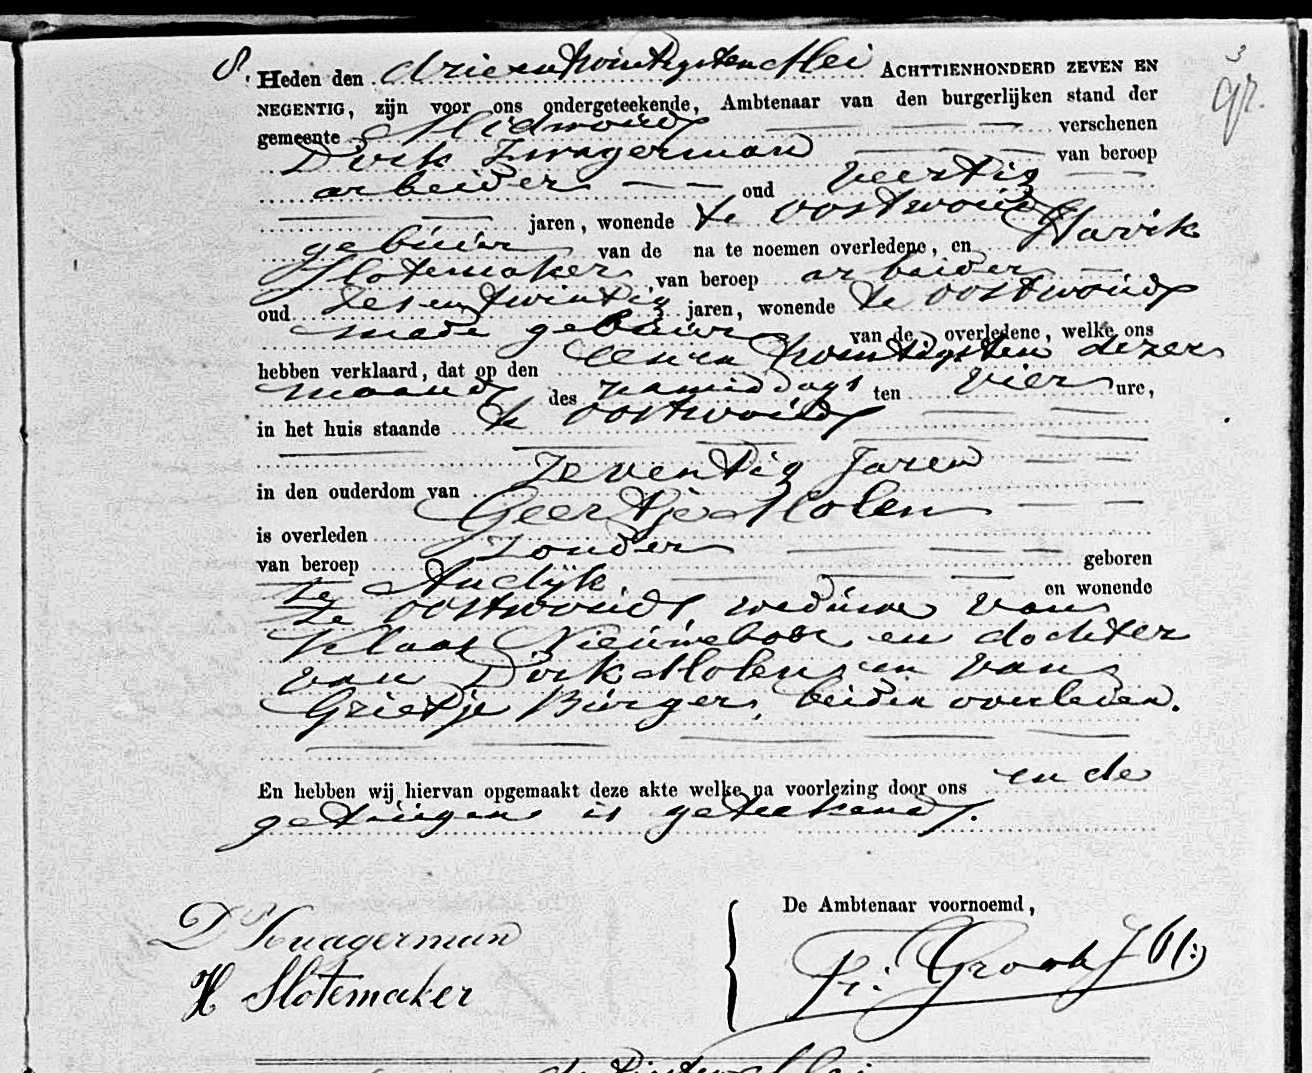 8. Heden den drieentwintigsten Mei ACHTTIENHONDERD ZEVEN EN
3
gr.
NEGENTIG, zijn voor ons ondergeteekende, Ambtenaar van den burgerlijken stand der
gemeente Midwoud verschenen
Dirk Zwagerman van beroep
arbeider oud veertig
jaren, wonende te Oostwoud
gebuur van de na te noemen overledene, en Harik
Slotemaker, van beroep arbeider
oud zesentwintig jaren, wonende te Oostwoud
mede gebuur van de overledene, welke ons
hebben verklaard, dat op den eenentwintigsten dezer
maand des namiddags ten vier ure,
in het huis staande te Oostwoud
in den ouderdom van zeventig jaren
is overleden Geertje Molen
van beroep zonder geboren
te Andijk en wonende
te Oostwoud weduwe van
Klaas Nieuweboer en dochter
van Dirk Molen en van
Grietje Burger, beiden overleden.
En hebben wij hiervan opgemaakt deze akte welke na voorlezing door ons en de
getuigen is geteekend.
De Ambtenaar voornoemd,
D Zwagerman
H Slotemaker
P. Groot